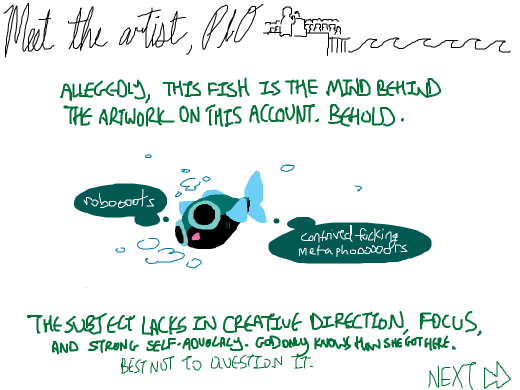 Meet the artist, PLO
ALLEGEDLY, THIS FISH IS THE MIND BEHIND
THE ARTWORK ON THIS ACCOUNT. BEHOLD.
roboooots
contrived fucking
metaphoooooors
THE SUBJECT LACKS IN CREATIVE DIRECTION, FOCUS,
AND STRONG SELF-ADVOCACY. GOD ONLY KNOWS HOW SHE GOT HERE.
BEST NOT TO QUESTION IT.
NEXT